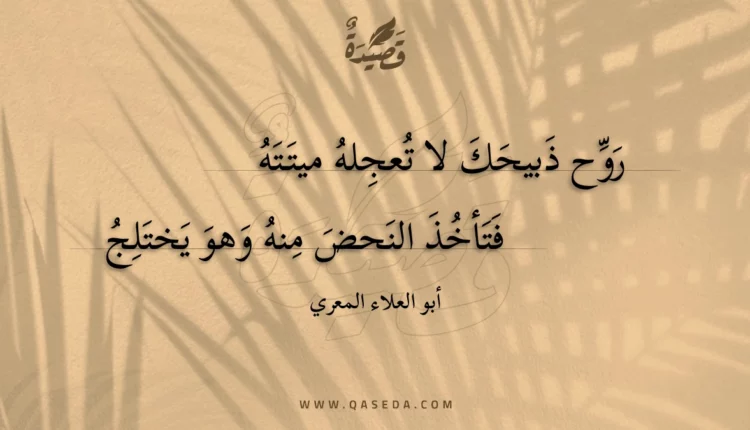 قَصِيدَةٌ
رَوِّح ذَبيحَكَ لا تُعجِلهُ ميتَتَهُ
فَتَأخُذَ النَحضَ مِنهُ وَهوَ يَختَلِجُ
أبو العلاء المعري
WWW.QASEDA.COM